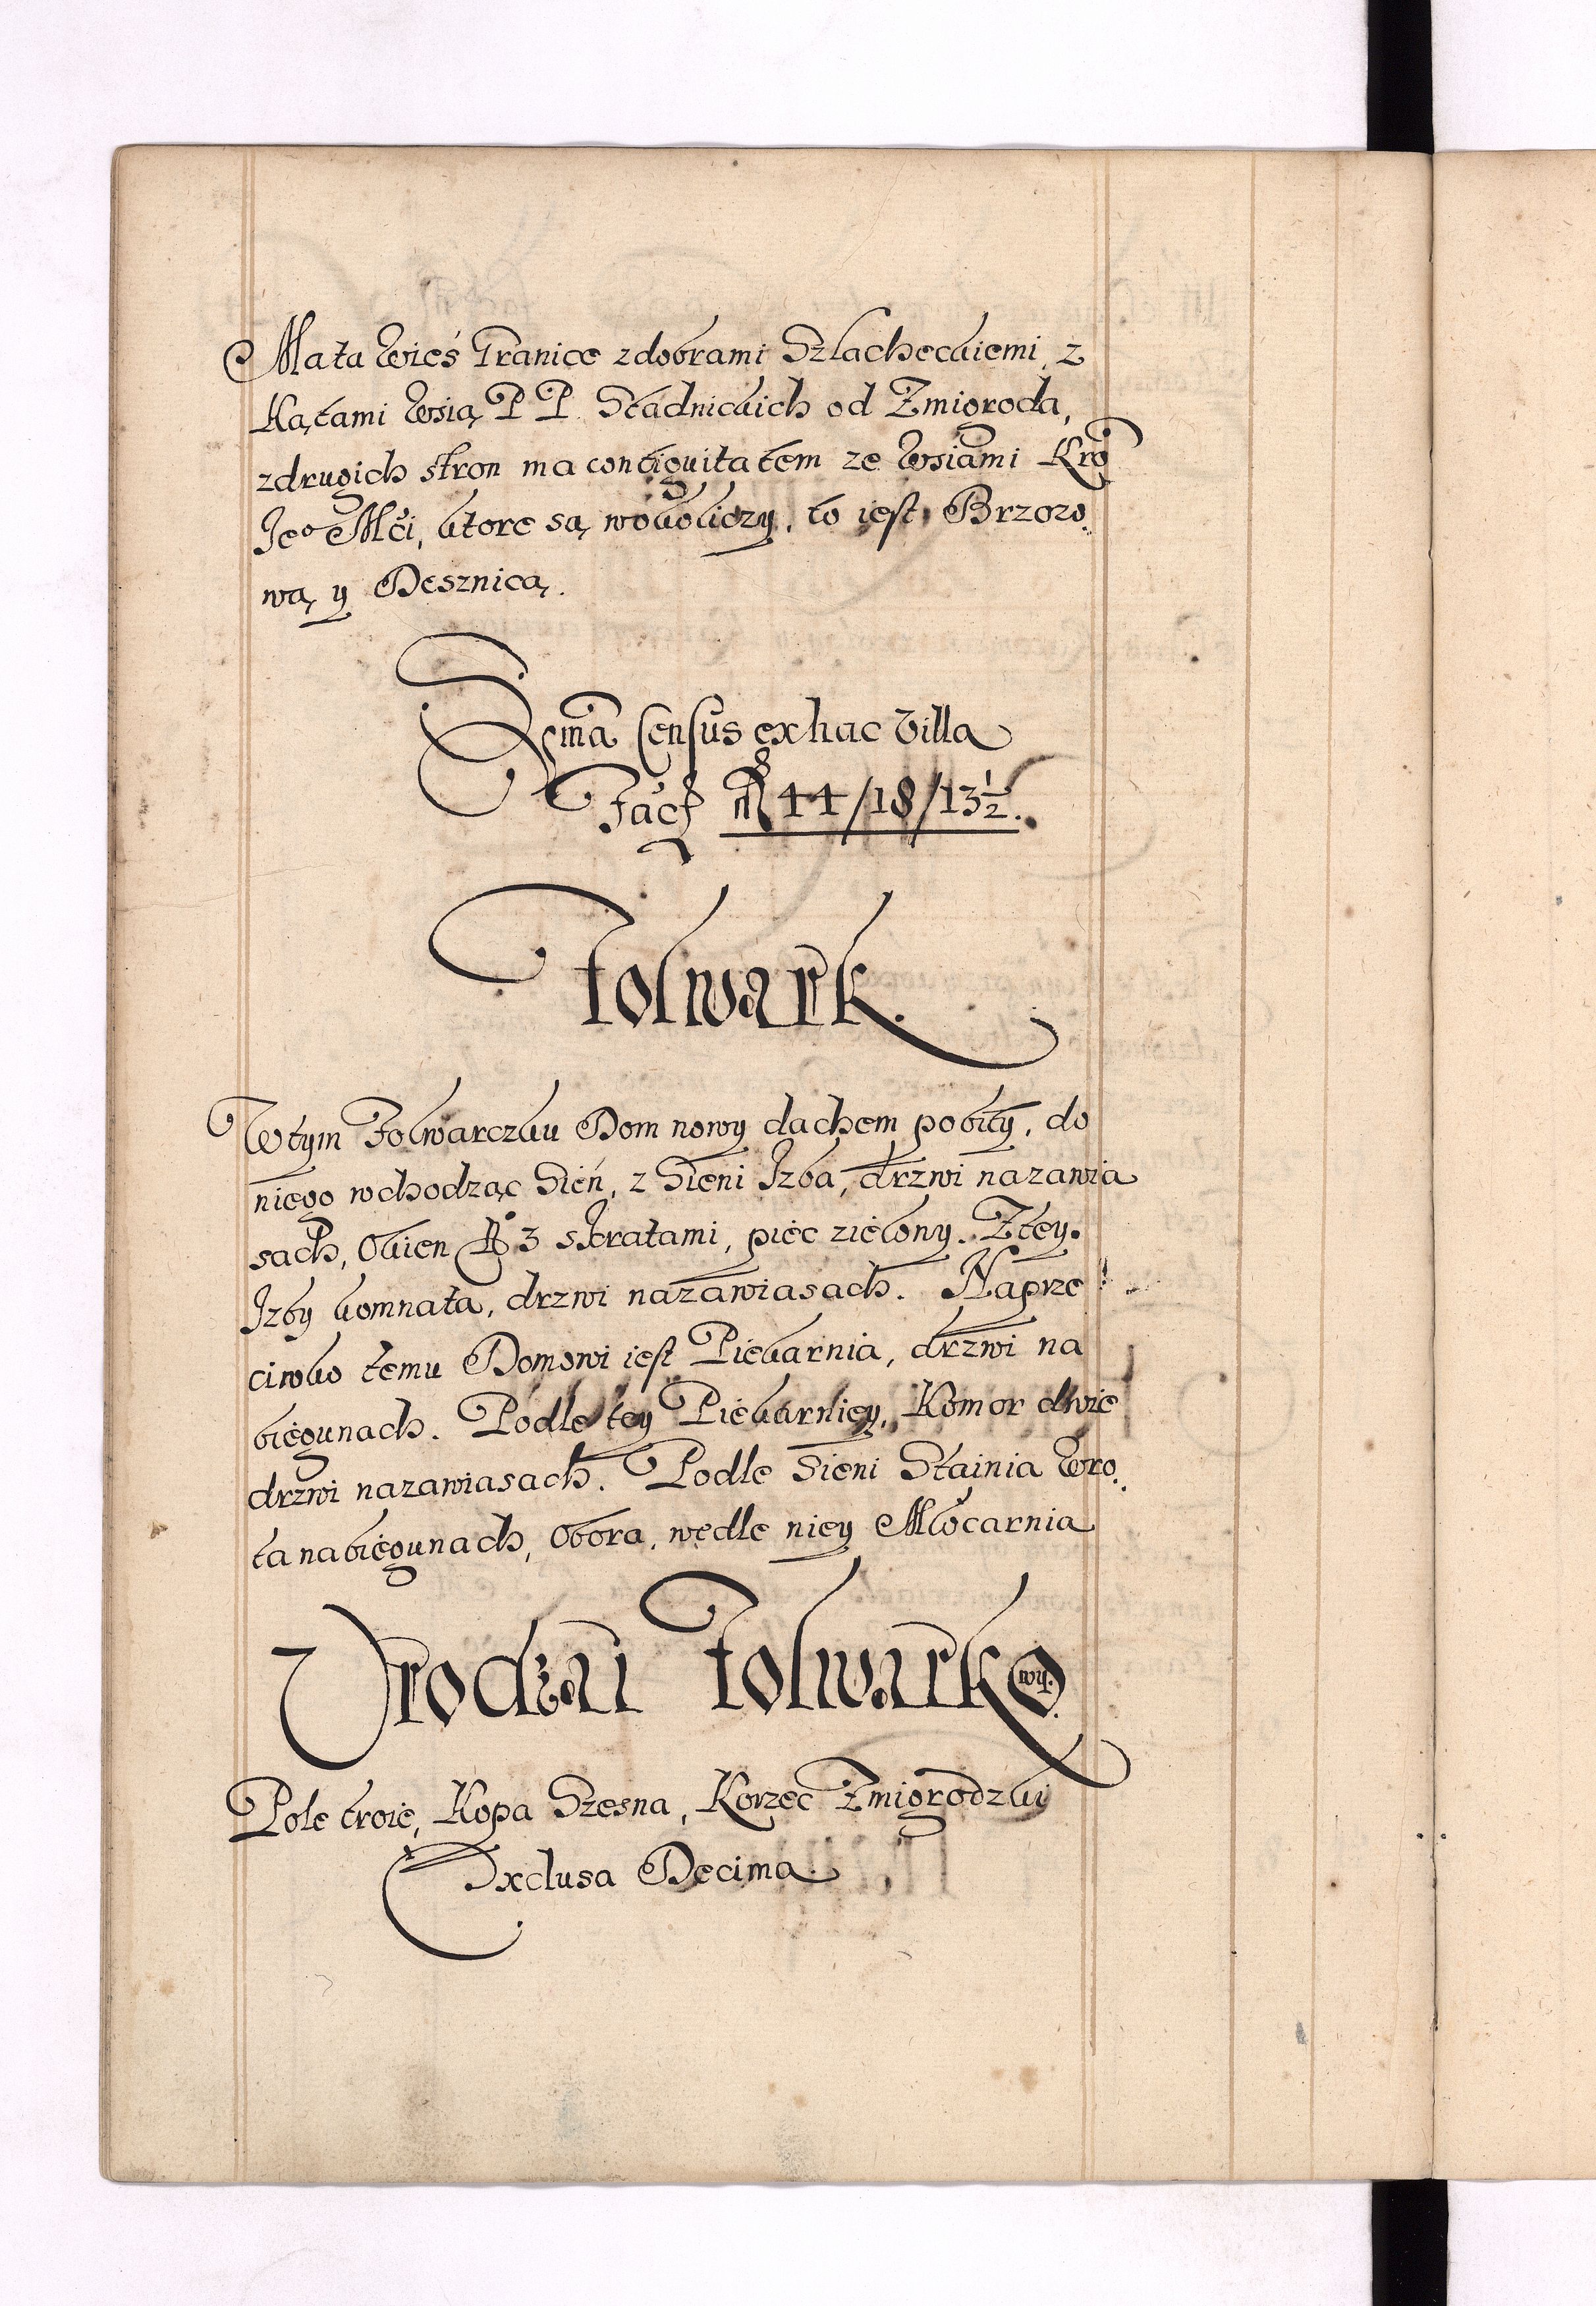 Ma ta wieś Granice z dobrami Szlacheckiemi, z
Kątami wsią P P Stadnickich od Zmigroda,
z drugich stron ma contiguitatem ze wsiami Kro
Jeo Mći, ktore są w okoliczy, to iest Brzozo
wą, y Desznicą.
Sma Census ex hac Villa
Facit 44/18/13½.
Folwark.
W tym Folwarczku Dom nowy dachem pobity, do
niego wchodząc Sień, z Sieni Izba, drzwi na zawia
sach, Okien No 3 s kratami, piec zielony. Z tey
Izby komnata, drzwi na zawiasach. Naprze
ciwko temu Domowi iest Piekarnia, drzwi na
biegunach. Podle tey Piekarniey, Komor dwie
drzwi na zawiasach. Podle Sieni Stainia wro
ta na biegunach, Obora, wedle niey Młocarnia
Vrodzai Folwarkowy.
Pole troie, Kopa Szesna, Korzec Zmigrodzki
Exclusa Decima